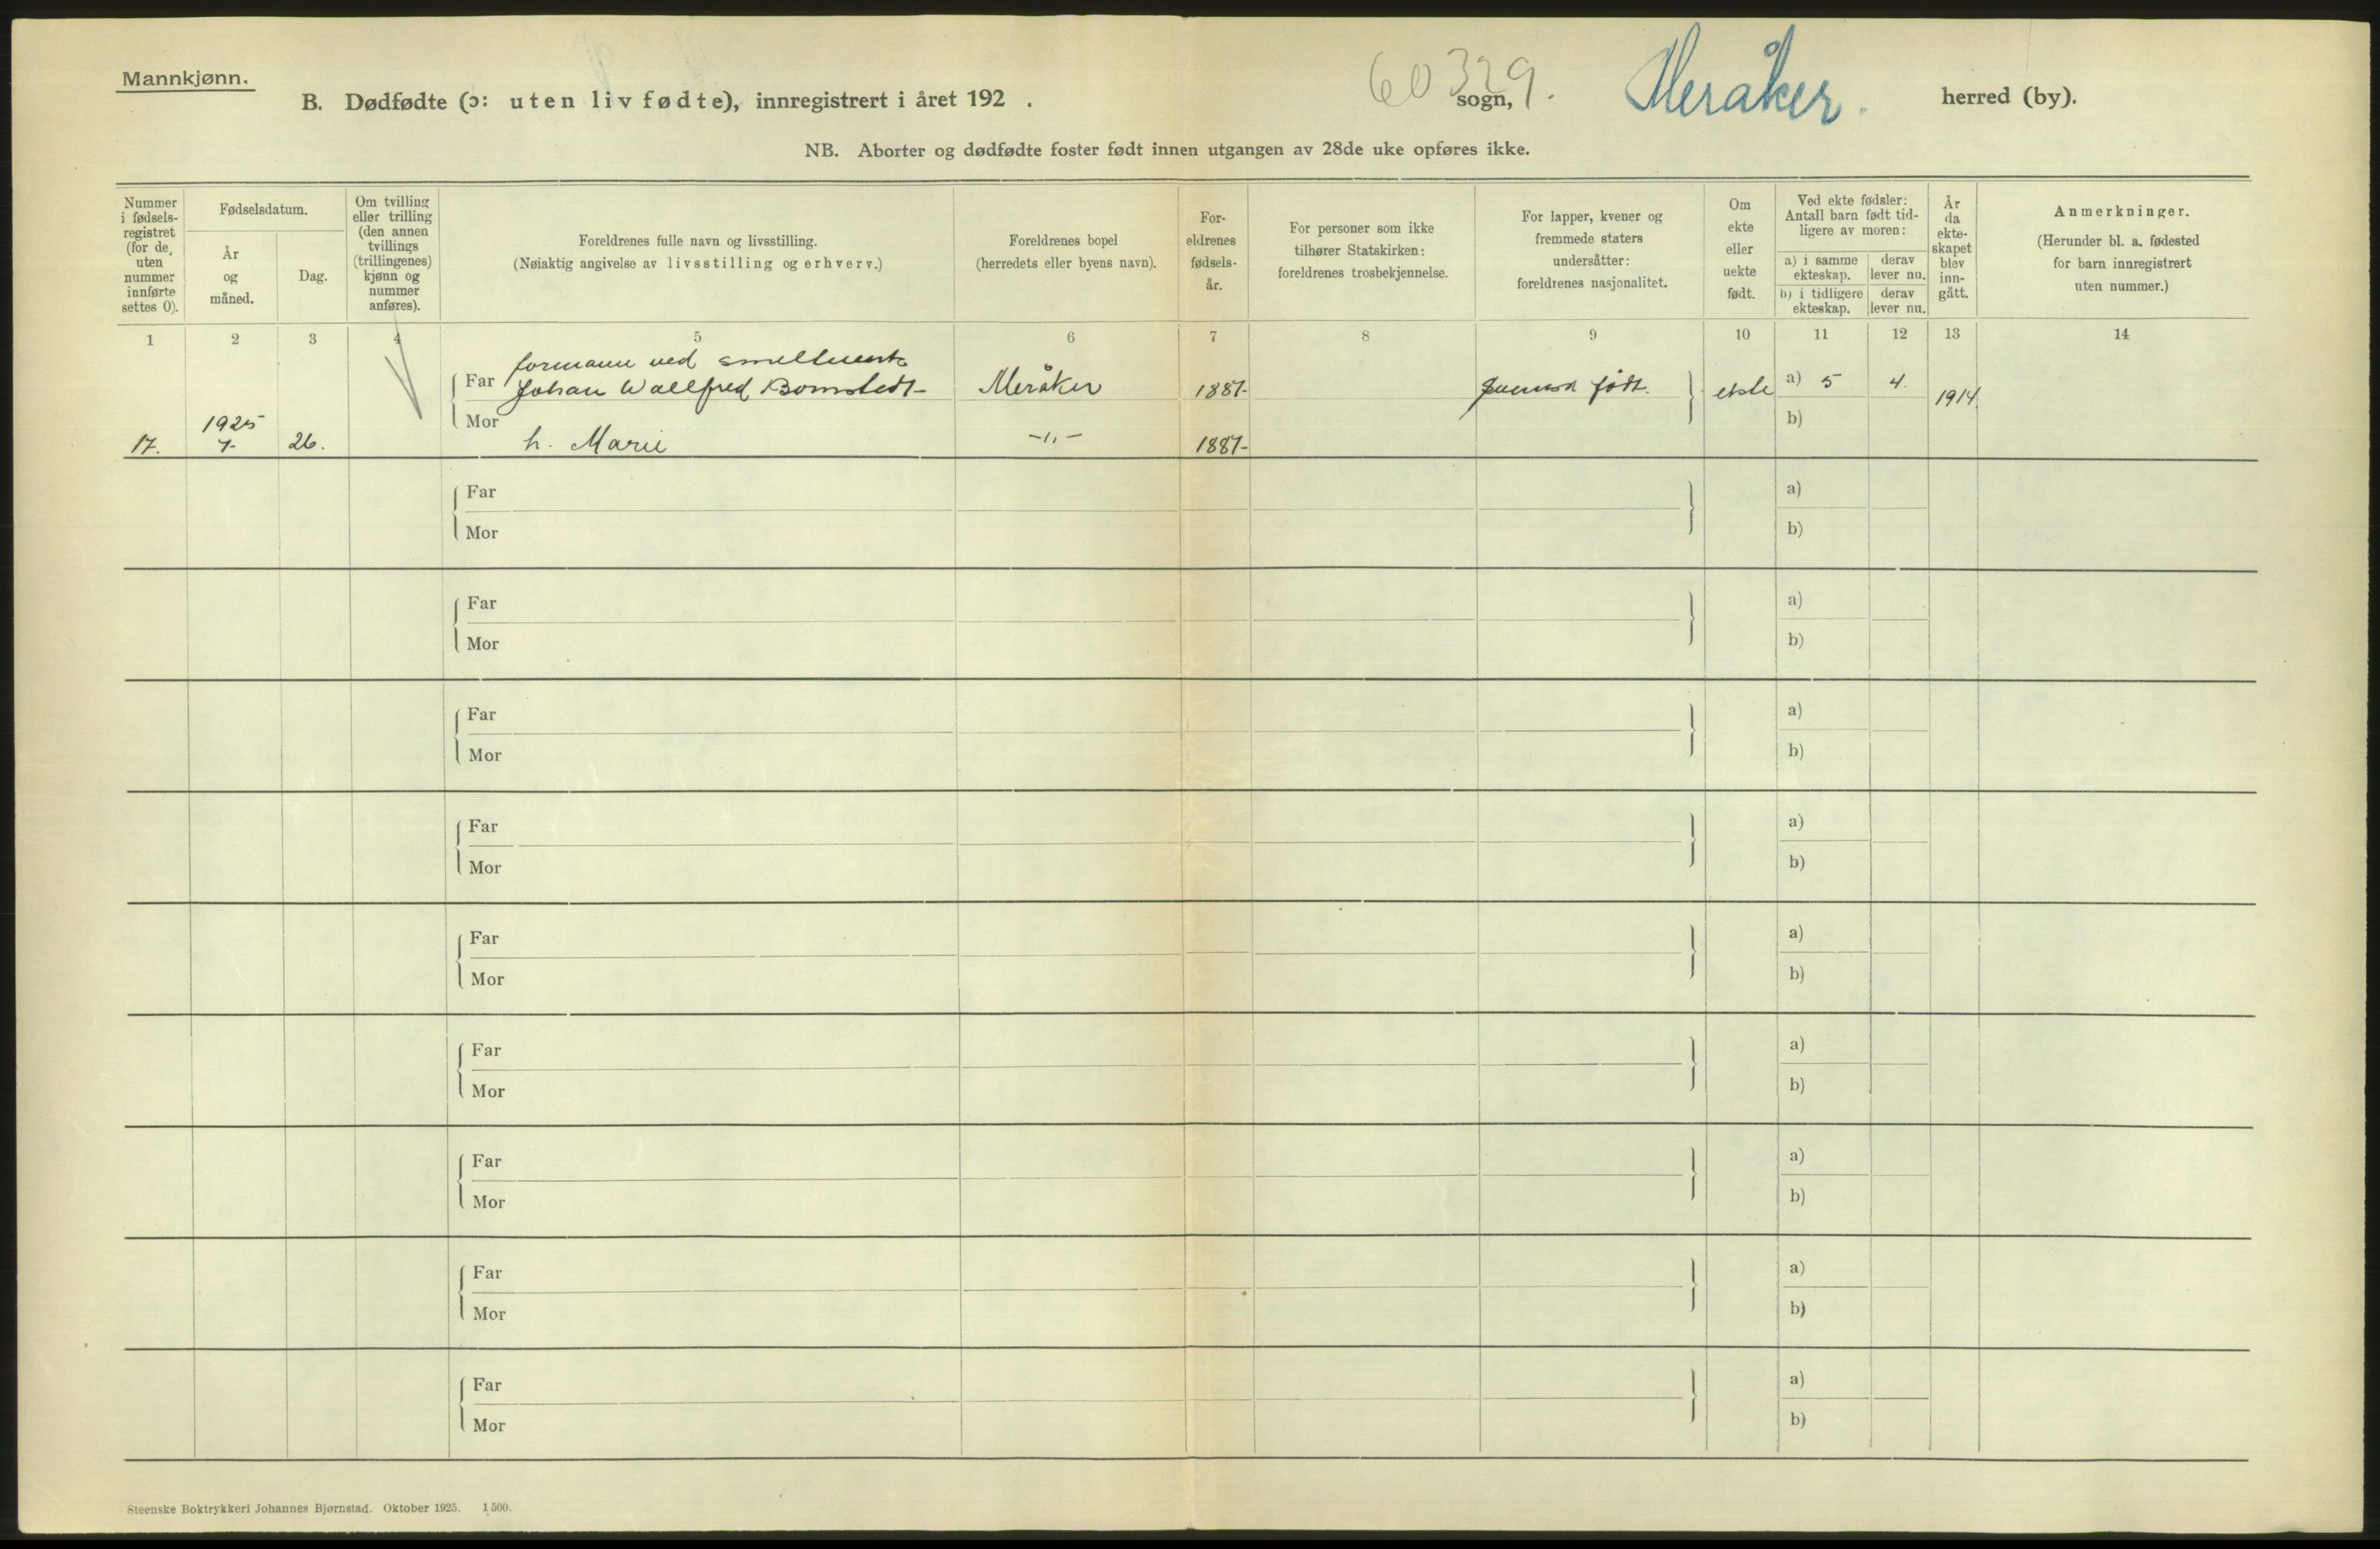 Mannkjønn.
B. Dødfødte (ɔ: uten liv fødte), innregistrert i året 192 .
60329.
sogn,
Meråker.
herred (by).
NB. Aborter og dødfødte foster født innen utgangen av 28de uke opføres ikke.
Nummer
i fødsels-
registret
(for de
uten
nummer
innførte
settes 0).
Fødselsdatum.
År
og
måned.
Dag.
Om tvilling
eller trilling
(den annen
tvillings
(trillingenes)
kjønn og
nummer
anføres).
Foreldrenes fulle navn og livsstilling.
(Nøiaktig angivelse av livsstilling og erhverv.)
Foreldrenes bopel
(herredets eller byens navn).
For-
eldrenes
fødsels-
år.
For personer som ikke
tilhører Statskirken:
foreldrenes trosbekjennelse.
For lapper, kvener og
fremmede staters
undersåtter:
foreldrenes nasjonalitet.
Om
ekte
eller
uekte
født.
Ved ekte fødsler:
Antall barn født tid-
ligere av moren:
a) i samme
ekteskap.
derav
lever nu.
b) i tidligere
ekteskap.
derav
lever nu.
År
da
ekte-
skapet
blev
inn-
gått.
Anmerkninger.
(Herunder bl. a. fødested
for barn innregistrert
uten nummer.)
1 2 3 4 5 6 7 8 9 10 11 12 13 14
formann ved smelteverk
Far Johan Wallfred Bomstedt Meråker 1887 født. ekte a) 5 4. 1914
17. 1925 7 26. Mor h. Marie -"- 1887 b)
Far a)
Mor b)
Far a)
Mor b)
Far a)
Mor b)
Far a)
Mor b)
Far a)
Mor b)
Far a)
Mor b)
Far a)
Mor b)
Far a)
Mor b)
Far a)
Mor b)
Steenske Boktrykkeri Johannes Bjørnstad. Oktober 1925. 1500.